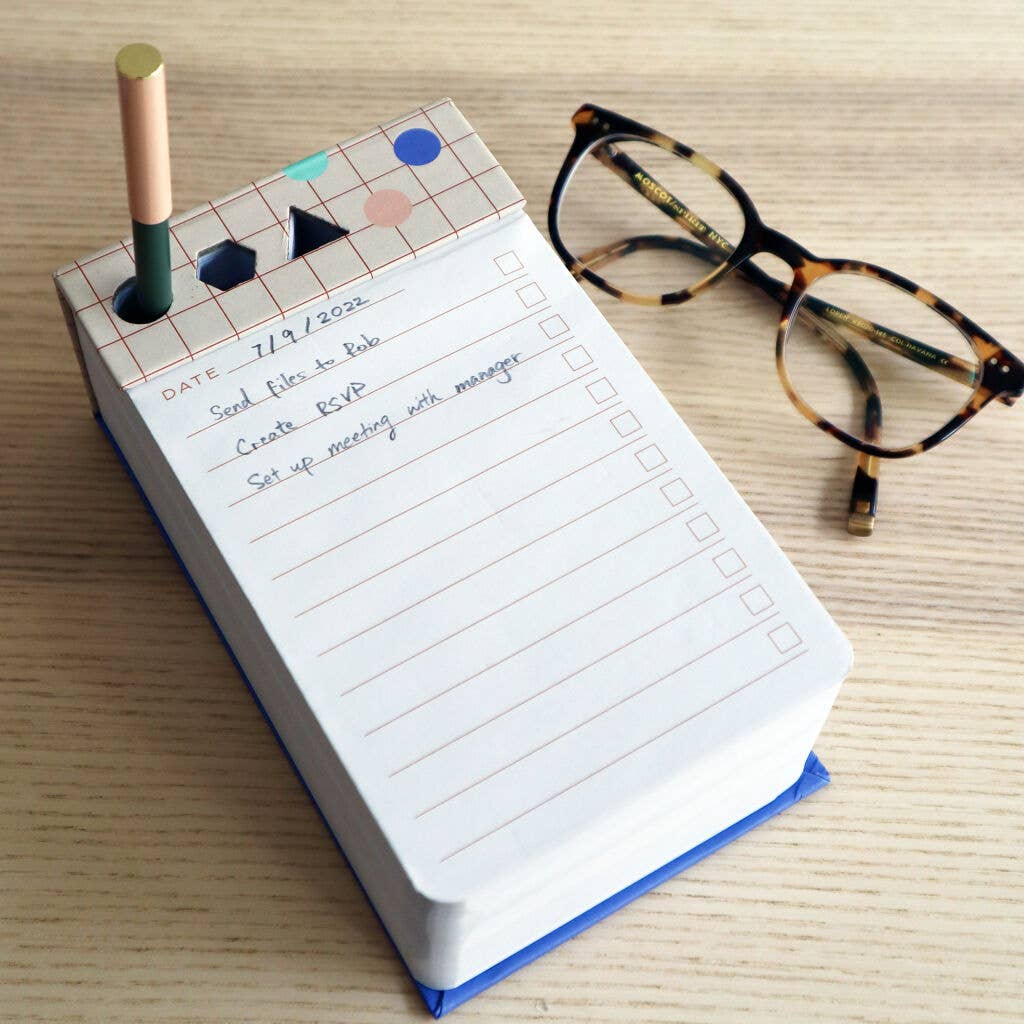 DATE 7/9/2022
Send files to Rob
Create RSVP
Set up meeting with manager
MOSCOT NYC